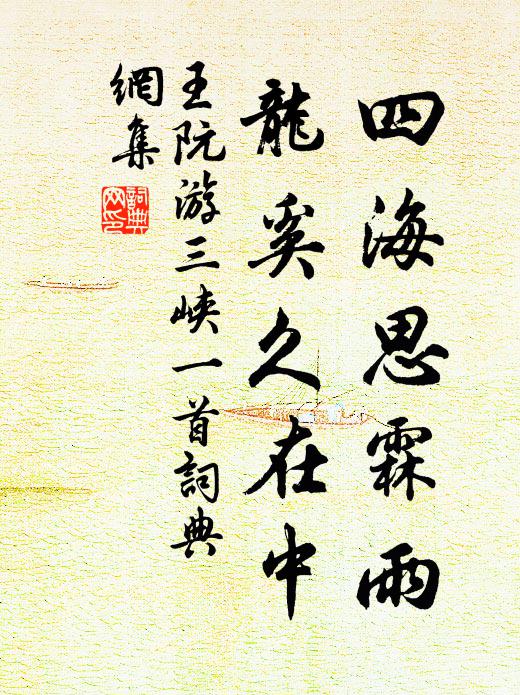 四海思霖雨
龍奚久在中
王阮游三峽一首詞典
網集
詞典
网印